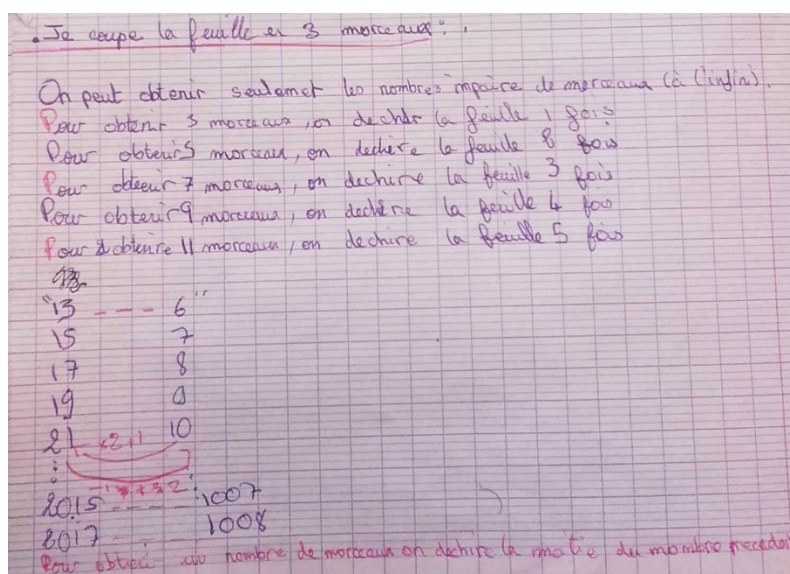 . Je coupe la feuille en 3 morceaux : .
On peut obtenir seulemet les nombres impaire de morceaux (à l'infin).
Pour obtenir 3 morceaux, on dechir la feuille 1 fois
Pour obtenir 5 morceaux, on dechire la feuille 8 fois
Pour obteenir 7 morceaux, on dechire la feuille 3 fois
Pour obtenir 9 morceaux, on dechire la feuille 4 fois
Pour obtenire 11 morceaux, on dechire la feuille 5 fois
"13 - - - 6"
15 7
17 8
19 9
21 10
2015 - - - 1007
2017 - - 1008
Pour obteni un nombre de morceaux on dechire la motie du mombre precedai